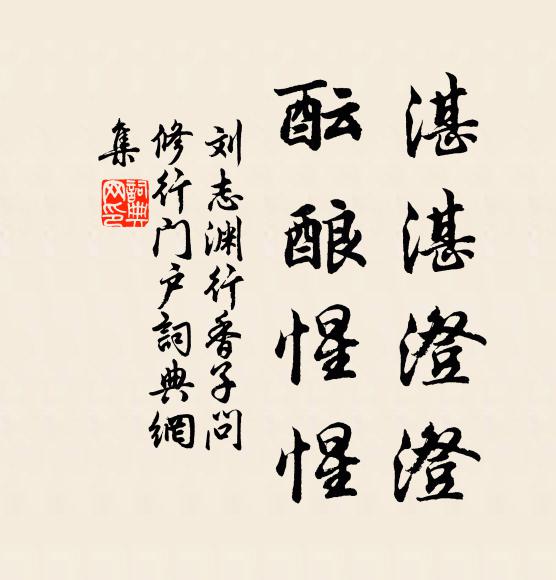 湛湛澄澄
酝酿惺惺
刘志渊行香子问
修行门户詞典網
集
詞典
网印